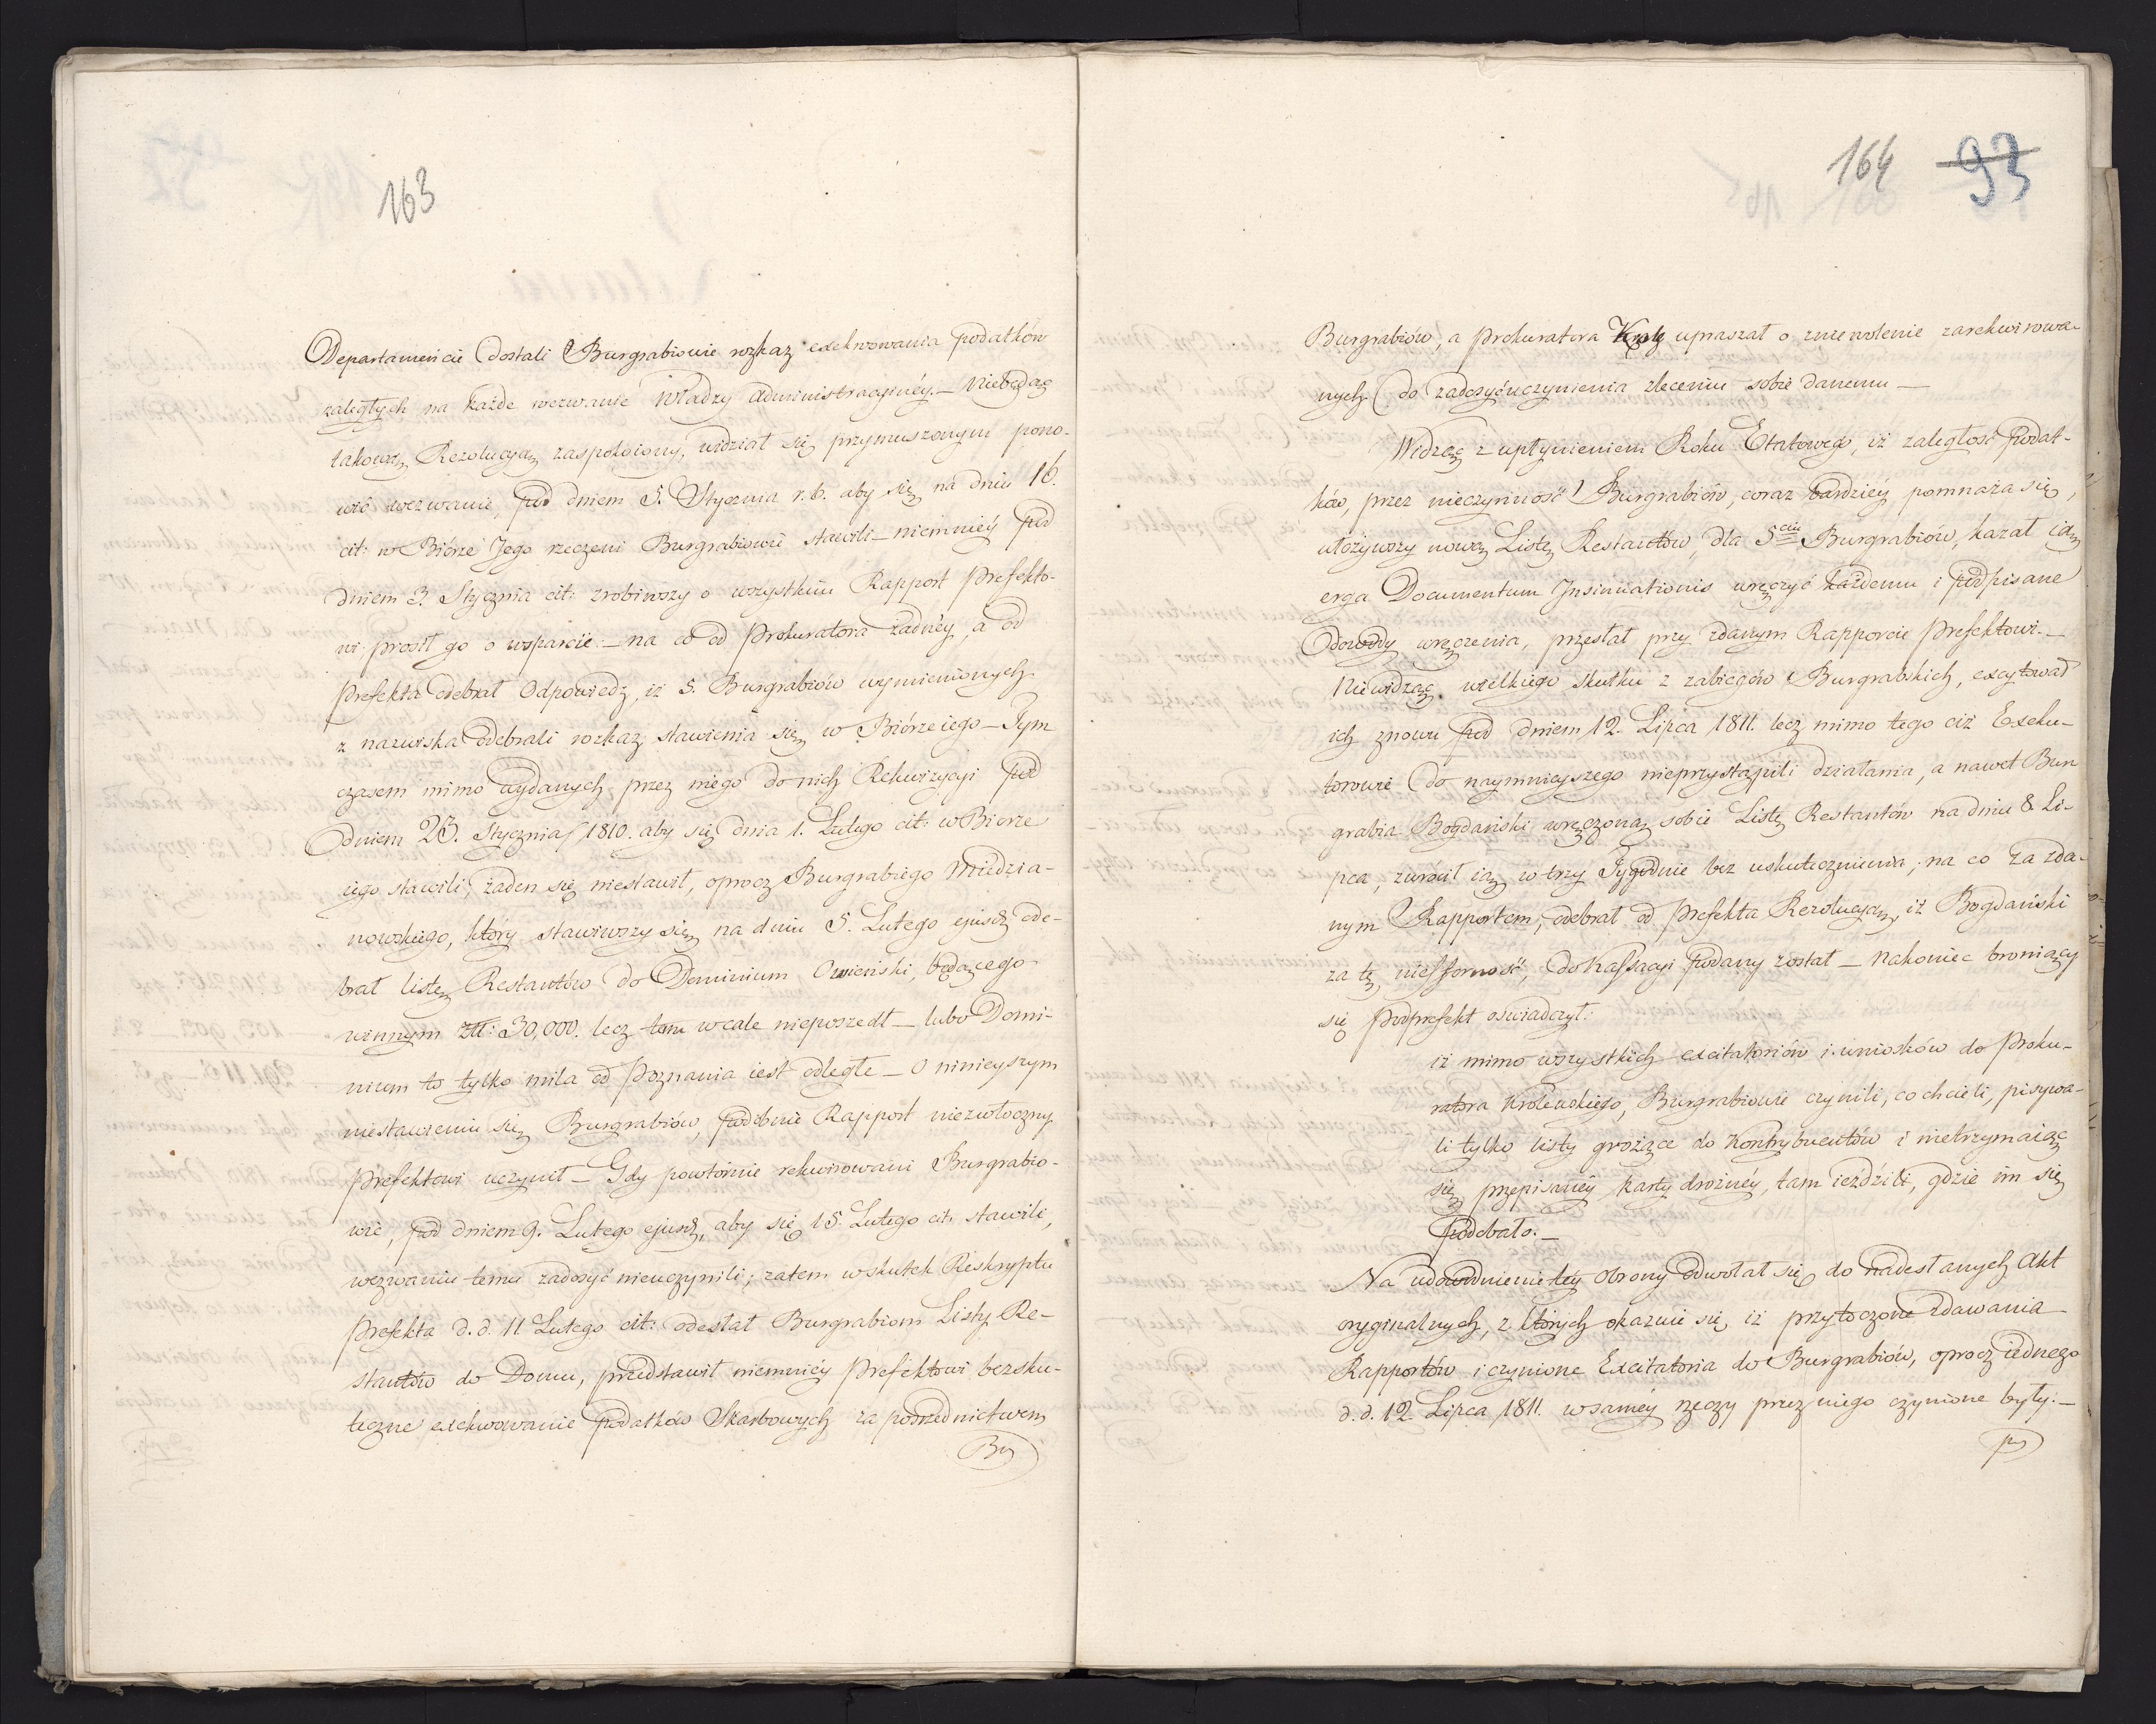 163
Departamencie dostali Burgrabiowie rozkaz exekwowania podatków
zaległych na każde wezwanie Władzy administracyiney. — Niebędąc
takową Rezolucyą zaspokoiony, widział się przymuszonym pono-
wić wezwanie, pod dniem 5. Stycznia r. b. aby się na dniu 16.
cit: w Biórze Jego rzeczeni Burgrabiowie stawili — niemniey pod
dniem 3. Stycznia cit: zrobiwszy o wszystkim Rapport Prefekto-
wi prosił go o wsparcie. — na co od Prokuratora żadney, a od
Prefekta odebrał Odpowiedź, iż 5. Burgrabiów wymienionych
z nazwiska odebrali rozkaz stawienia się w Biórze iego — Tym
czasem mimo wydanych przez niego do nich Rekwizycyi pod
dniem 23. Stycznia 1810. aby się dnia 1. Lutego cit: w Biorze
iego stawili, żaden się niestawił, oprocz Burgrabiego Miedzia-
nowskiego, który stawiwszy się na dniu 5. Lutego ejusd. ode-
brał listę Restantów do Dominium Owieński, będącego
winnym Złł: 30,000. lecz tam wcale nieposzedł — lubo Domi-
nium to tylko mila od Poznania iest odległe — O ninieyszym
niestawieniu się Burgrabiów, podobnie Rapport niezwłoczny
Prefektowi uczynił — Gdy powtórnie rekwirowani Burgrabio-
wie, pod dniem 9. Lutego ejusd. aby się 15. Lutego cit: stawili,
wezwaniu temu zadosyć nieuczynili; zatem w skutek Reskryptu
Prefekta d. d. 11 Lutego cit: odesłał Burgrabiom Listy Re-
stantów do Domu, przedstawił niemniey Prefektowi bezsku-
teczne exekwowanie podatków Skarbowych za posrednictwem
Bu
164 93
Burgrabiów, a Prokuratora upraszał o zniewolenie zarekwirowa-
nych do zadosyćuczynienia zleceniu sobie danemu —
Widząc z upłynieniem Roku Etatowego, iż zaległość podat-
ków, przez nieczynność Burgrabiów, coraz bardziey pomnaża się,
ułożywszy nową Listę Restantów, dla 5ciu Burgrabiów, kazał ią
erga Documentum Insinuationis wręczyć każdemu i podpisane
Dowody wręczenia, przesłał przy zdanym Rapporcie Prefektowi. —
Niewidząc wielkiego skutku z zabiegów Burgrabskich, excytował
ich znowu pod dniem 12. Lipca 1811. lecz mimo tego ciż Exeku-
torowie do naymnieyszego nieprzystąpili działania, a nawet Bur
grabia Bogdański wręczoną sobie Listę Restantów na dniu 8. Li-
pca, zwrócił ią w trzy Tygodnie bez uskutecznienia, na co za zda-
nym Rapportem, odebrał od Prefekta Rezolucyą, iż Bogdański
za tę niesforność, do Kassacyi podany został — nakoniec broniący
się Podprefekt oswiadczył:
iż mimo wszystkich excitatoriów i wniosków do Proku-
ratora Krolewskiego, Burgrabiowie czynili, co chcieli, pisywa-
li tylko listy grożące do Kontrybuentów i nietrzymaiąc
się przepisaney karty drożney, tam ieździli, gdzie im się
podobało. —
Na udowodnienie tey Obrony odwołał się do nadesłanych akt
oryginalnych, z których okazuie się, iż przytoczone zdawania
Rapportów i czynione Excitatoria do Burgrabiów, oprocz iednego
d. d. 12. Lipca 1811. w samey rzeczy przez niego czynione były. —